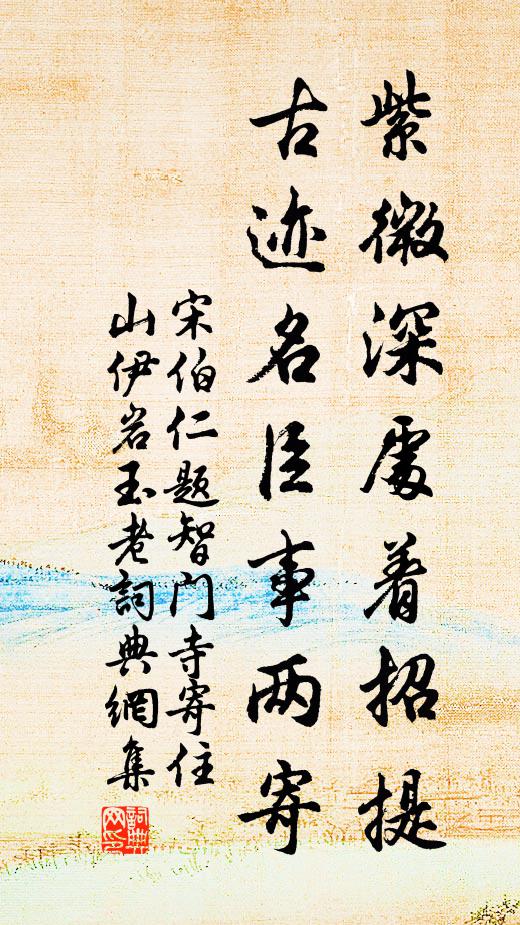 紫微深處着招提
古迹名臣事两寄
宋伯仁题智门寺寄住
山伊岩玉老詞典網集